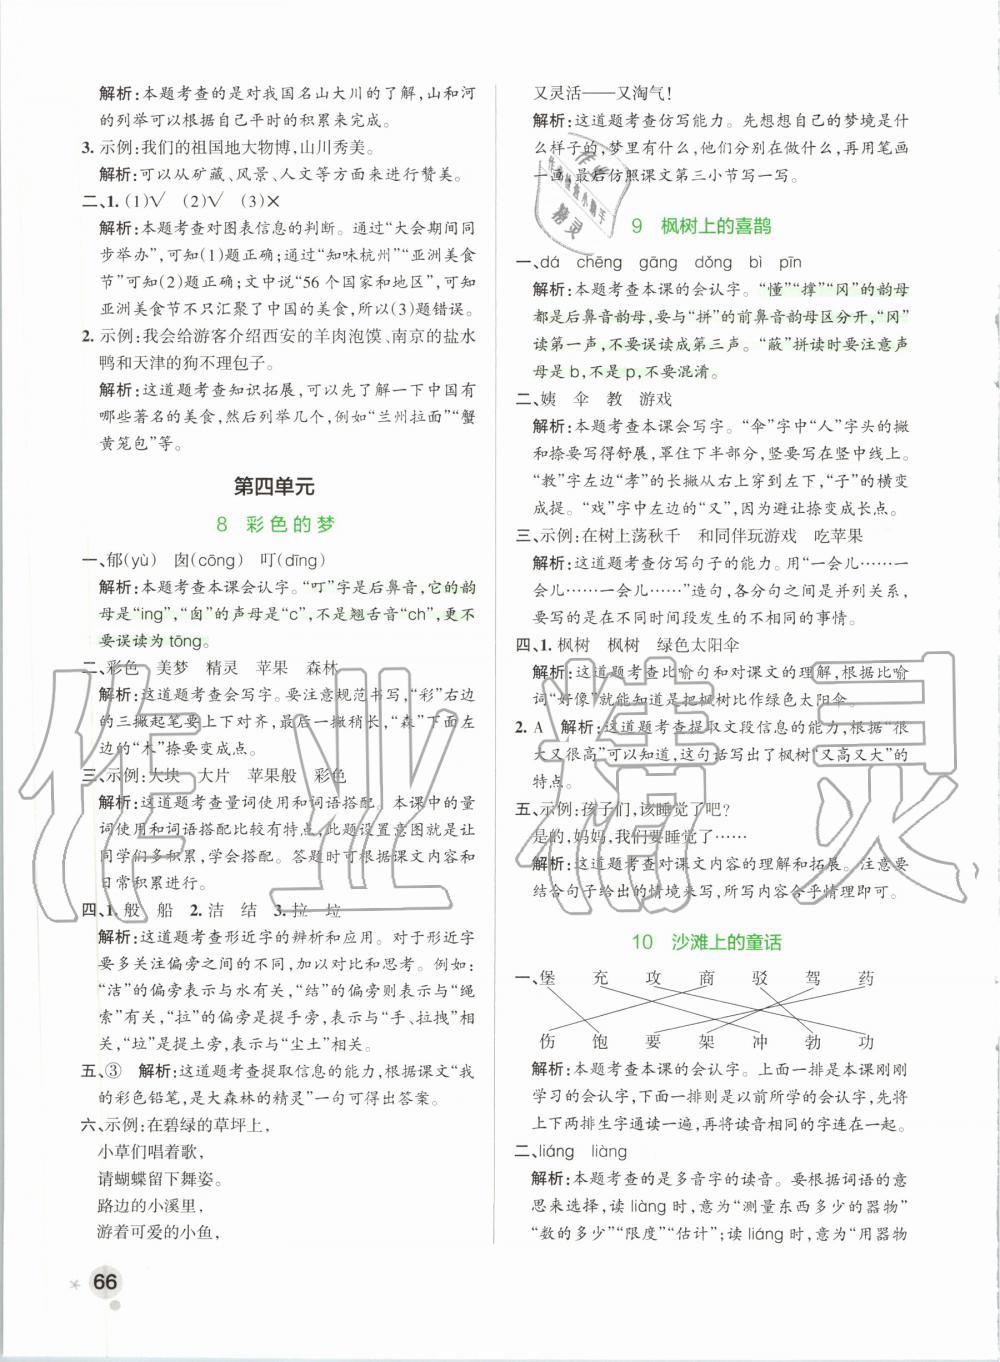 解析:本题考查的是对我国名山大川的了解,山和河
的列举可以根据自己平时的积累来完成。
3. 示例:我们的祖国地大物博,山川秀美。
解析:可以从矿藏、风景、人文等方面来进行赞美。
二、1. (1)√ (2)√ (3)×
解析:本题考查对图表信息的判断。通过“大会期间同
步举办”,可知(1)题正确;通过“知味杭州”“亚洲美食
节”可知(2)题正确;文中说“56个国家和地区”,可知
亚洲美食节不只汇聚了中国的美食,所以(3)题错误。
2. 示例:我会给游客介绍西安的羊肉泡馍、南京的盐水
鸭和天津的狗不理包子。
解析:这道题考查知识拓展,可以先了解一下中国有
哪些著名的美食,然后列举几个,例如“兰州拉面”“蟹
黄笼包”等。
第四单元
8 彩色的梦
一、郁(yù) 囱(cōng) 叮(dīng)
解析:本题考查本课会认字。“叮”字是后鼻音,它的韵
母是“ing”,“囱”的声母是“c”,不是翘舌音“ch”,更不
要误读为tōng。
二、彩色 美梦 精灵 苹果 森林
解析:这道题考查会写字。注意规范书写,“彩”右边
的三撇起笔要上下对齐,最后一撇稍长,“森”下面左
边的“木”捺要变成点。
三、示例:大块 大片 苹果般 彩色
解析:这道题考查量词使用和词语搭配。本课中的量
词使用和词语搭配比较有特点,此题设置意图就是让
同学们多积累,学会搭配。答题时可根据课文内容和
日常积累进行。
四、1. 般 船 2. 洁 结 3. 拉 垃
解析:这道题考查形近字的辨析和应用。对于形近字
要多关注偏旁之间的不同,加以对比和思考。例如:
“洁”的偏旁表示与水有关,“结”的偏旁则表示与“绳
索”有关,“拉”的偏旁是提手旁,表示与“手、拉拽”有
关,“垃”是提土旁,表示与“尘土”有关。
五、③ 解析:这道题考查提取信息的能力,根据课文“我
的彩色铅笔,是大森林的精灵”一句可得出答案。
六、示例:在碧绿的草坪上,
小草们唱着歌,
请蝴蝶留下舞姿。
路边的小溪里,
游着可爱的小鱼,
又灵活——又淘气!
解析:这道题考查仿写能力。先想想自己的梦境是什
么样子的,梦里有什么,分别在做什么,再用笔画
一画,最后仿照课文第三小节写一写。
9 枫树上的喜鹊
一、dá chēng gāng dǒng bì pīn
解析:本题考查本课的会认字。“懂”“撑”“冈”的韵母
都是后鼻音韵母,要与“拼”的前鼻音韵母区分开,“冈”
读第一声,不要误读成第三声。“蔽”拼读时要注意声
母是b,不是p,不要混淆。
二、姨 伞 教 游戏
解析:本题考查本课会写字。“伞”字中“人”字头的撇
和捺要写得舒展,罩住下半部分,竖要写在竖中线上。
“教”字左边“孝”的长撇从右上穿到左下,“子”的横变
成提。“戏”字中左边的“又”,因为避让捺变成长点。
三、示例:在树上荡秋千 和同伴玩游戏 吃苹果
解析:这道题考查仿写句子的能力。用“一会儿……一
会儿……一会儿……”造句,各分句之间是并列关系,
要写的是在不同时间段发生的不相同的事情。
四、1. 枫树 枫树 绿色太阳伞
解析:这道题考查比喻句和对课文的理解,根据比喻
词“好像”就能知道是把枫树比作绿色太阳伞。
2. A 解析:这道题考查提取文段信息的能力,根据“很
大又很高”可以知道,这句话写出了枫树“又高又大”的
特点。
五、示例:孩子们,该睡觉了吧?
是的,妈妈,我们要睡觉了……
解析:这道题考查对课文内容的理解和拓展。注意要
结合句子给出的情境来写,所写内容合乎情理即可。
10 沙滩上的童话
一、堡 充 攻 商 驳 驾 药
伤 饱 要 架 冲 勃 功
解析:本题考查本课的会认字。上面一排是本课刚刚
学习的会认字,下面一排是以前所学的会认字,大家
将上下两排生字通读一遍,再将读音相同的连在一起。
二、liáng liàng
解析:本题考查的是多音字的读音。要根据词语的意
思来选择,读liàng时,意为“测量东西多少的器物”
“数的多少”“限度”“估计”;读liáng时,意为“用器物
66
作业精灵